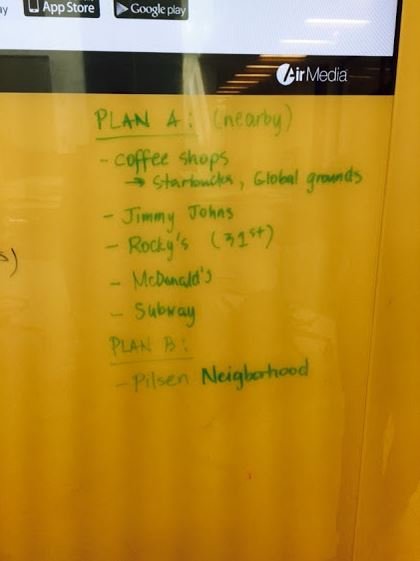 App Store
Google play
AirMedia
PLAN A: (nearby)
- coffee shops
→ Starbucks, Global grounds
- Jimmy Johns
- Rocky's (31st)
- McDonald's
- Subway
PLAN B:
- Pilsen Neigborhood